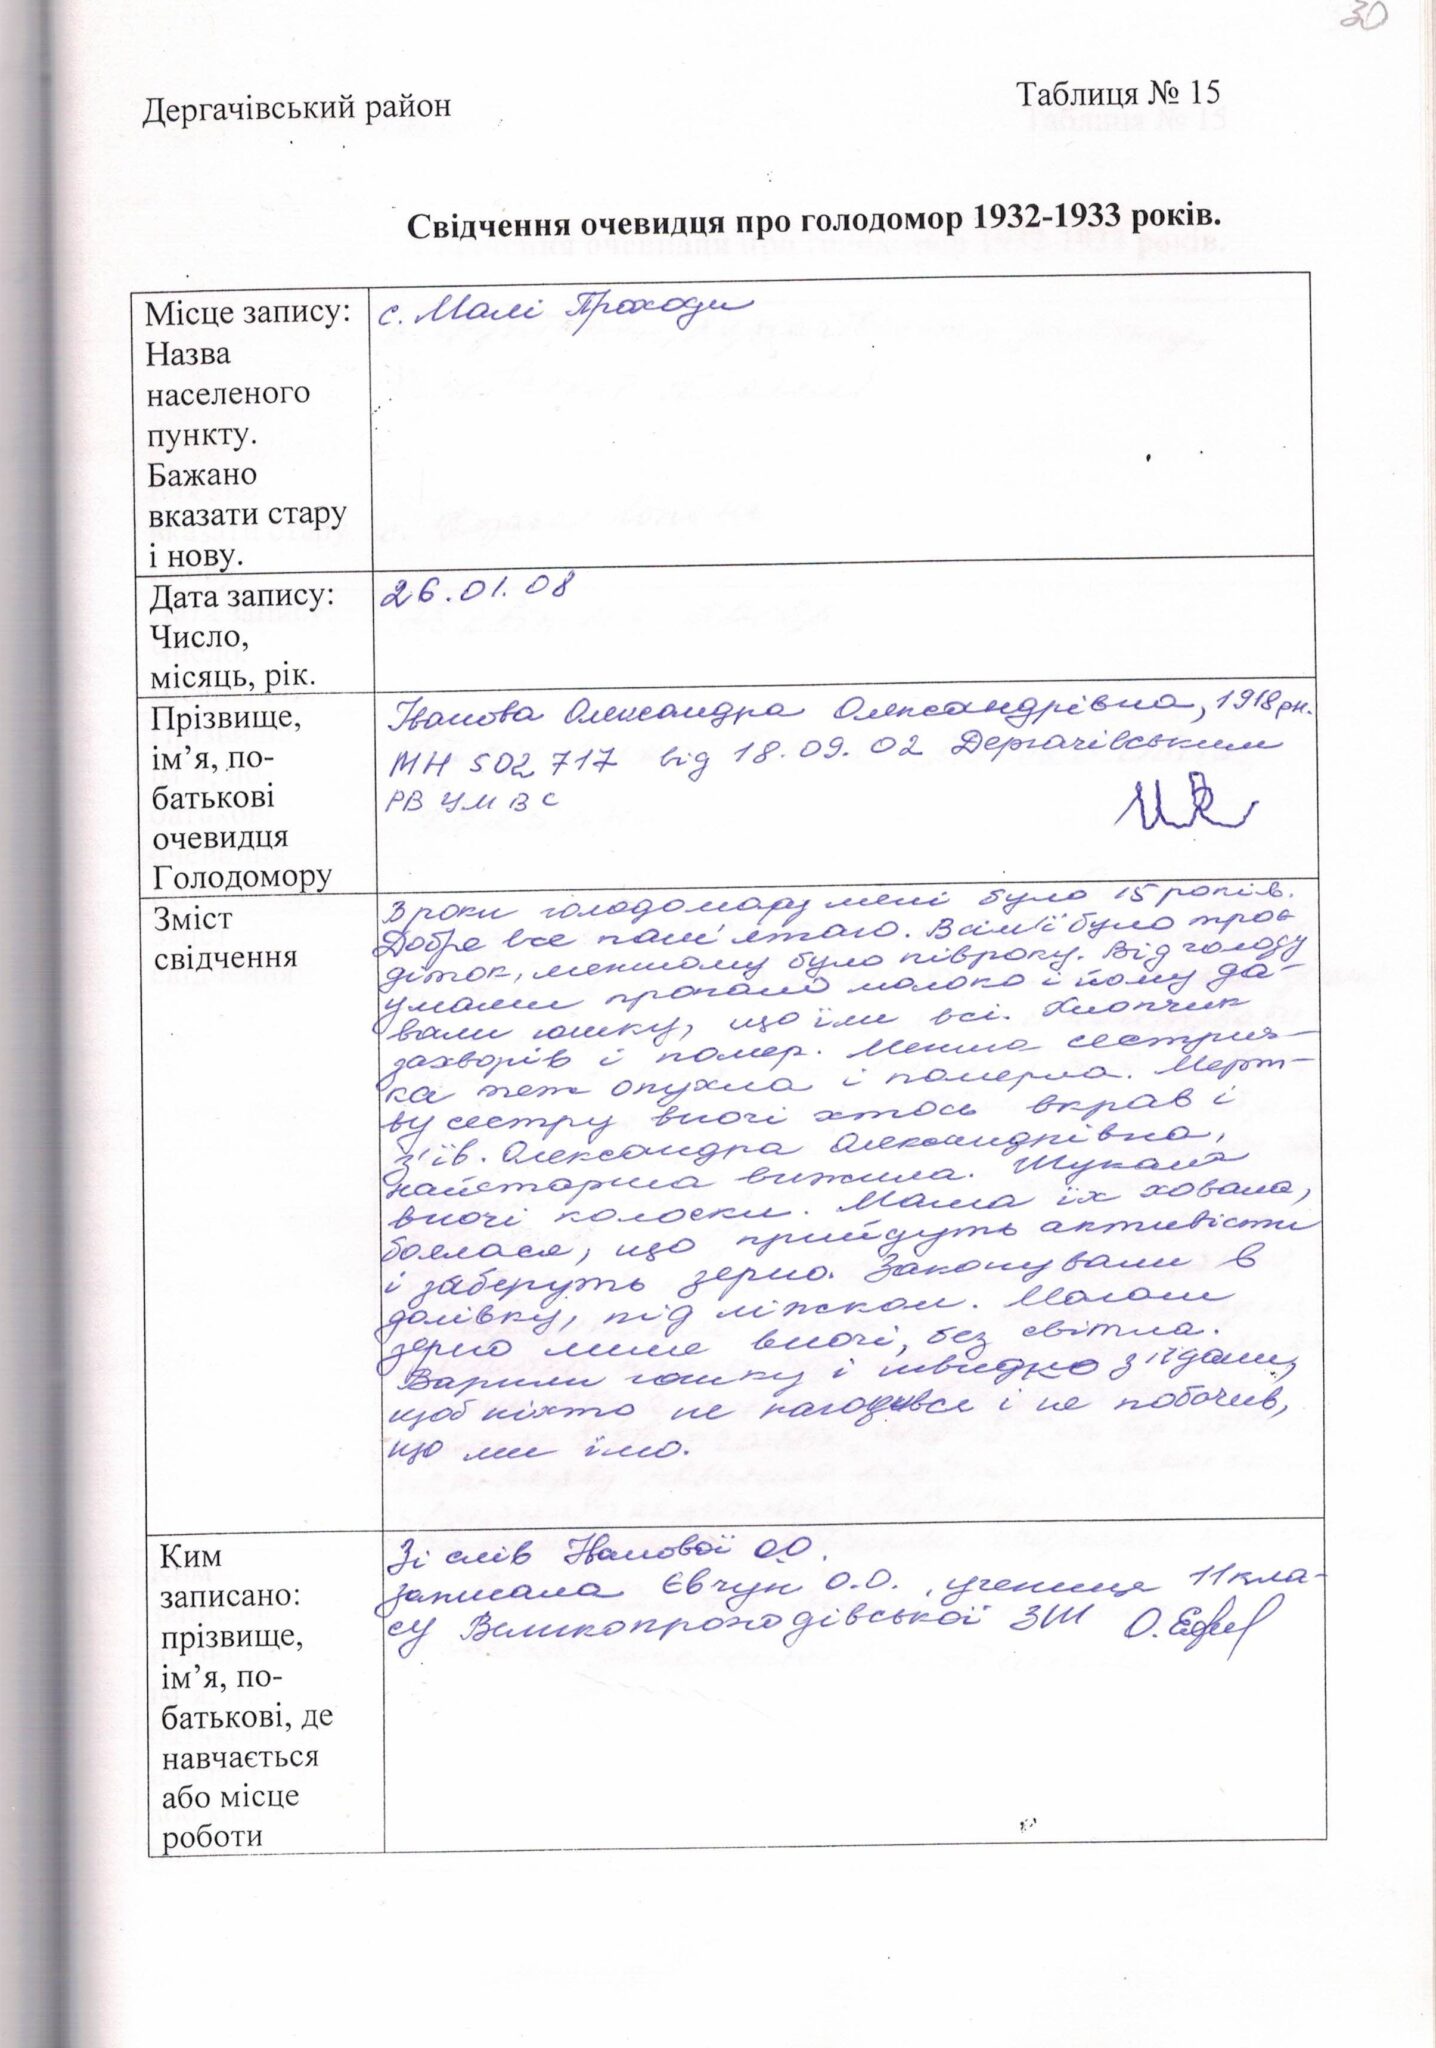 30
Дергачівський район
Таблиця № 15
Свідчення очевидця про голодомор 1932-1933 років.
Місце запису:
Назва
населеного
пункту.
Бажано
вказати стару
і нову.
с. Малі Проходи
Дата запису:
Число,
місяць, рік.
26.01.08
Прізвище,
ім’я, по-
батькові
очевидця
Голодомору
Іванова Олександра Олександрівна, 1918 рн.
МН 502 717 від 18.09.02 Дергачівським
РВ УМВС
Зміст
свідчення
В роки голодомору мені було 15 років.
Добре все пам'ятаю. В сім'ї було троє
діток, меншому було півроку. Від голоду
у мами пропало молоко і йому да-
вали юшку, що їли всі. Хлопчик
захворів і помер. Менша сестрич-
ка теж опухла і померла. Мерт-
ву сестру вночі хтось вкрав і
з'їв. Олександра Олександрівна,
найстарша вижила. Шукали
вночі колоски. Мама їх ховала,
боялася, що прийдуть активісти
і заберуть зерно. Закопували в
долівку, під ліжком. Мололи
зерно лише вночі, без світла.
Варили юшку і швидко з'їдали,
щоб ніхто не нагодився і не побачив,
що ми їмо.
Ким
записано:
прізвище,
ім’я, по-
батькові, де
навчається
або місце
роботи
Зі слів Іванової О.О.
записала Євчук О.О., учениця 11 кла-
су Великопроходівської ЗШ